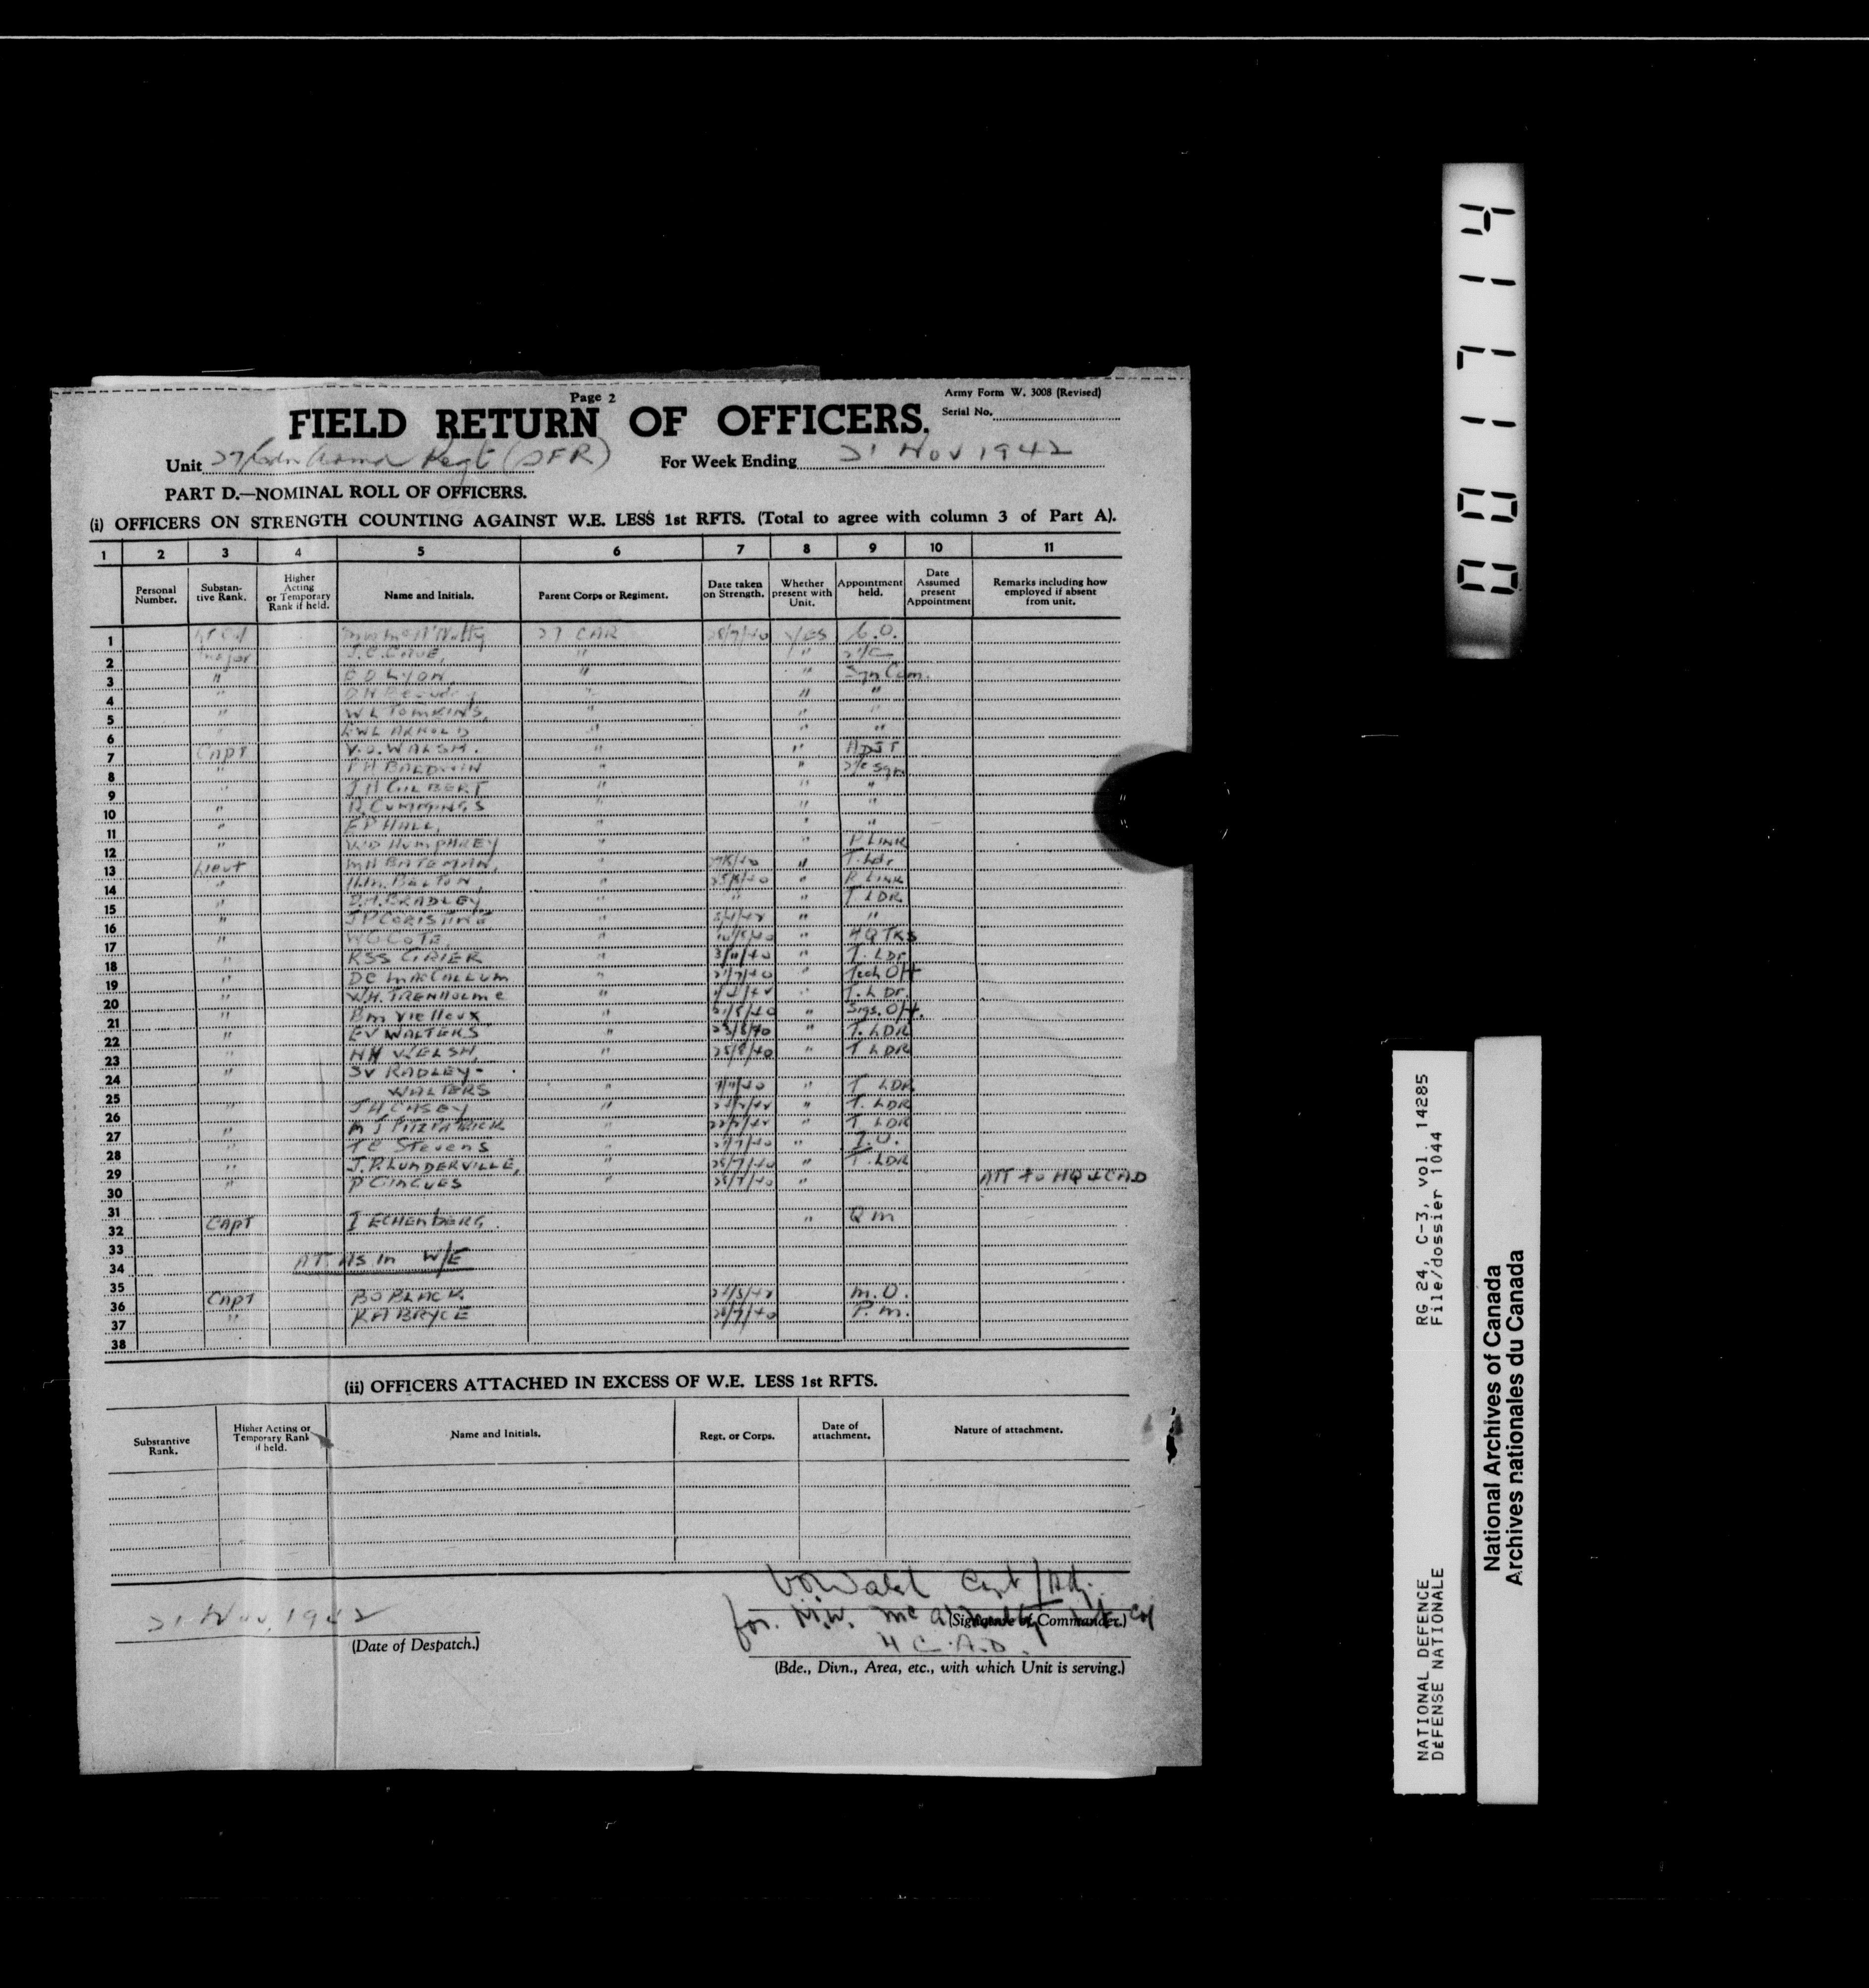 Page 2
Army Form W. 3008 (Revised)
FIELD RETURN OF OFFICERS.
Serial No.
Unit 27 Cdn Armd Regt (SFR) For Week Ending 21 Nov 1942
PART D.—NOMINAL ROLL OF OFFICERS.
(i) OFFICERS ON STRENGTH COUNTING AGAINST W.E. LESS 1st RFTS. (Total to agree with column 3 of Part A).
1 2 3 4 5 6 7 8 9 10 11
Personal Number. Substantive Rank. Higher Acting or Temporary Rank if held. Name and Initials. Parent Corps or Regiment. Date taken on Strength. Whether present with Unit. Appointment held. Date Assumed present Appointment Remarks including how employed if absent from unit.
1 Lt Col 27 CAR 28/7/40 YES C.O.
2 Major J.C. CAVE, " " 2i/c
3 " E D LYON, " " Sqn Com.
4 " " " "
5 " W L TOMKINS, " " "
6 " ARNOLD " " "
7 Capt V.O. WALSH. " " ADJT
8 " BALDWIN " " 2i/c Sqn
9 " J H GILBERT " " "
10 " R. CUMMINGS " " "
11 " F P HALL, " "
12 " W D HUMPHREY " " R LINK
13 Lieut M H BATEMAN, " " T. Ldr
14 " BELTON, " " R LINK
15 " D.H. BRADLEY " " " T LDR
16 " J P CORISTINE " " "
17 " W G COTE, " " HQ TKS
18 " R S S GRIER " 3/11/40 " T. LDr
19 " D C MACCALLUM " 21/7/40 " Tech Off
20 " W.H. TRENHOLME " " T. L Dr.
21 " B M Vielleux " " Sigs. Off.
22 " E V WALTERS " 23/8/40 " T. LDR
23 " H H WELSH, " 25/8/40 " T LDR
24 " S V RADLEY-
25 WALTERS " " T LDR
26 " J H CASEY " " T. LDR
27 " M J FITZPATRICK " " T LDR
28 " T E Stevens " 27/7/40 " I.O.
29 " J.P. LUNDERVILLE, " 25/7/40 " T. LDR
30 " P O JACQUES " 25/7/40 " ATT to HQ 4 CAD
31
32 Capt I ECHENBERG. " QM
33
34 ATT AS In W/E
35
36 Capt B O BLACK. M.O.
37 " R H BRYCE P.M.
38
(ii) OFFICERS ATTACHED IN EXCESS OF W.E. LESS 1st RFTS.
Substantive Rank. Higher Acting or Temporary Rank if held. Name and Initials. Regt. or Corps. Date of attachment. Nature of attachment.
V O Walsh Capt/Adj.
21 Nov. 1942
for. M.W. Lt Col
(Signature of Commander.)
(Date of Despatch.)
4 C.A.D.
(Bde., Divn., Area, etc., with which Unit is serving.)
001714
NATIONAL DEFENCE RG 24, C-3, vol. 14285
DEFENSE NATIONALE File/dossier 1044
National Archives of Canada
Archives nationales du Canada